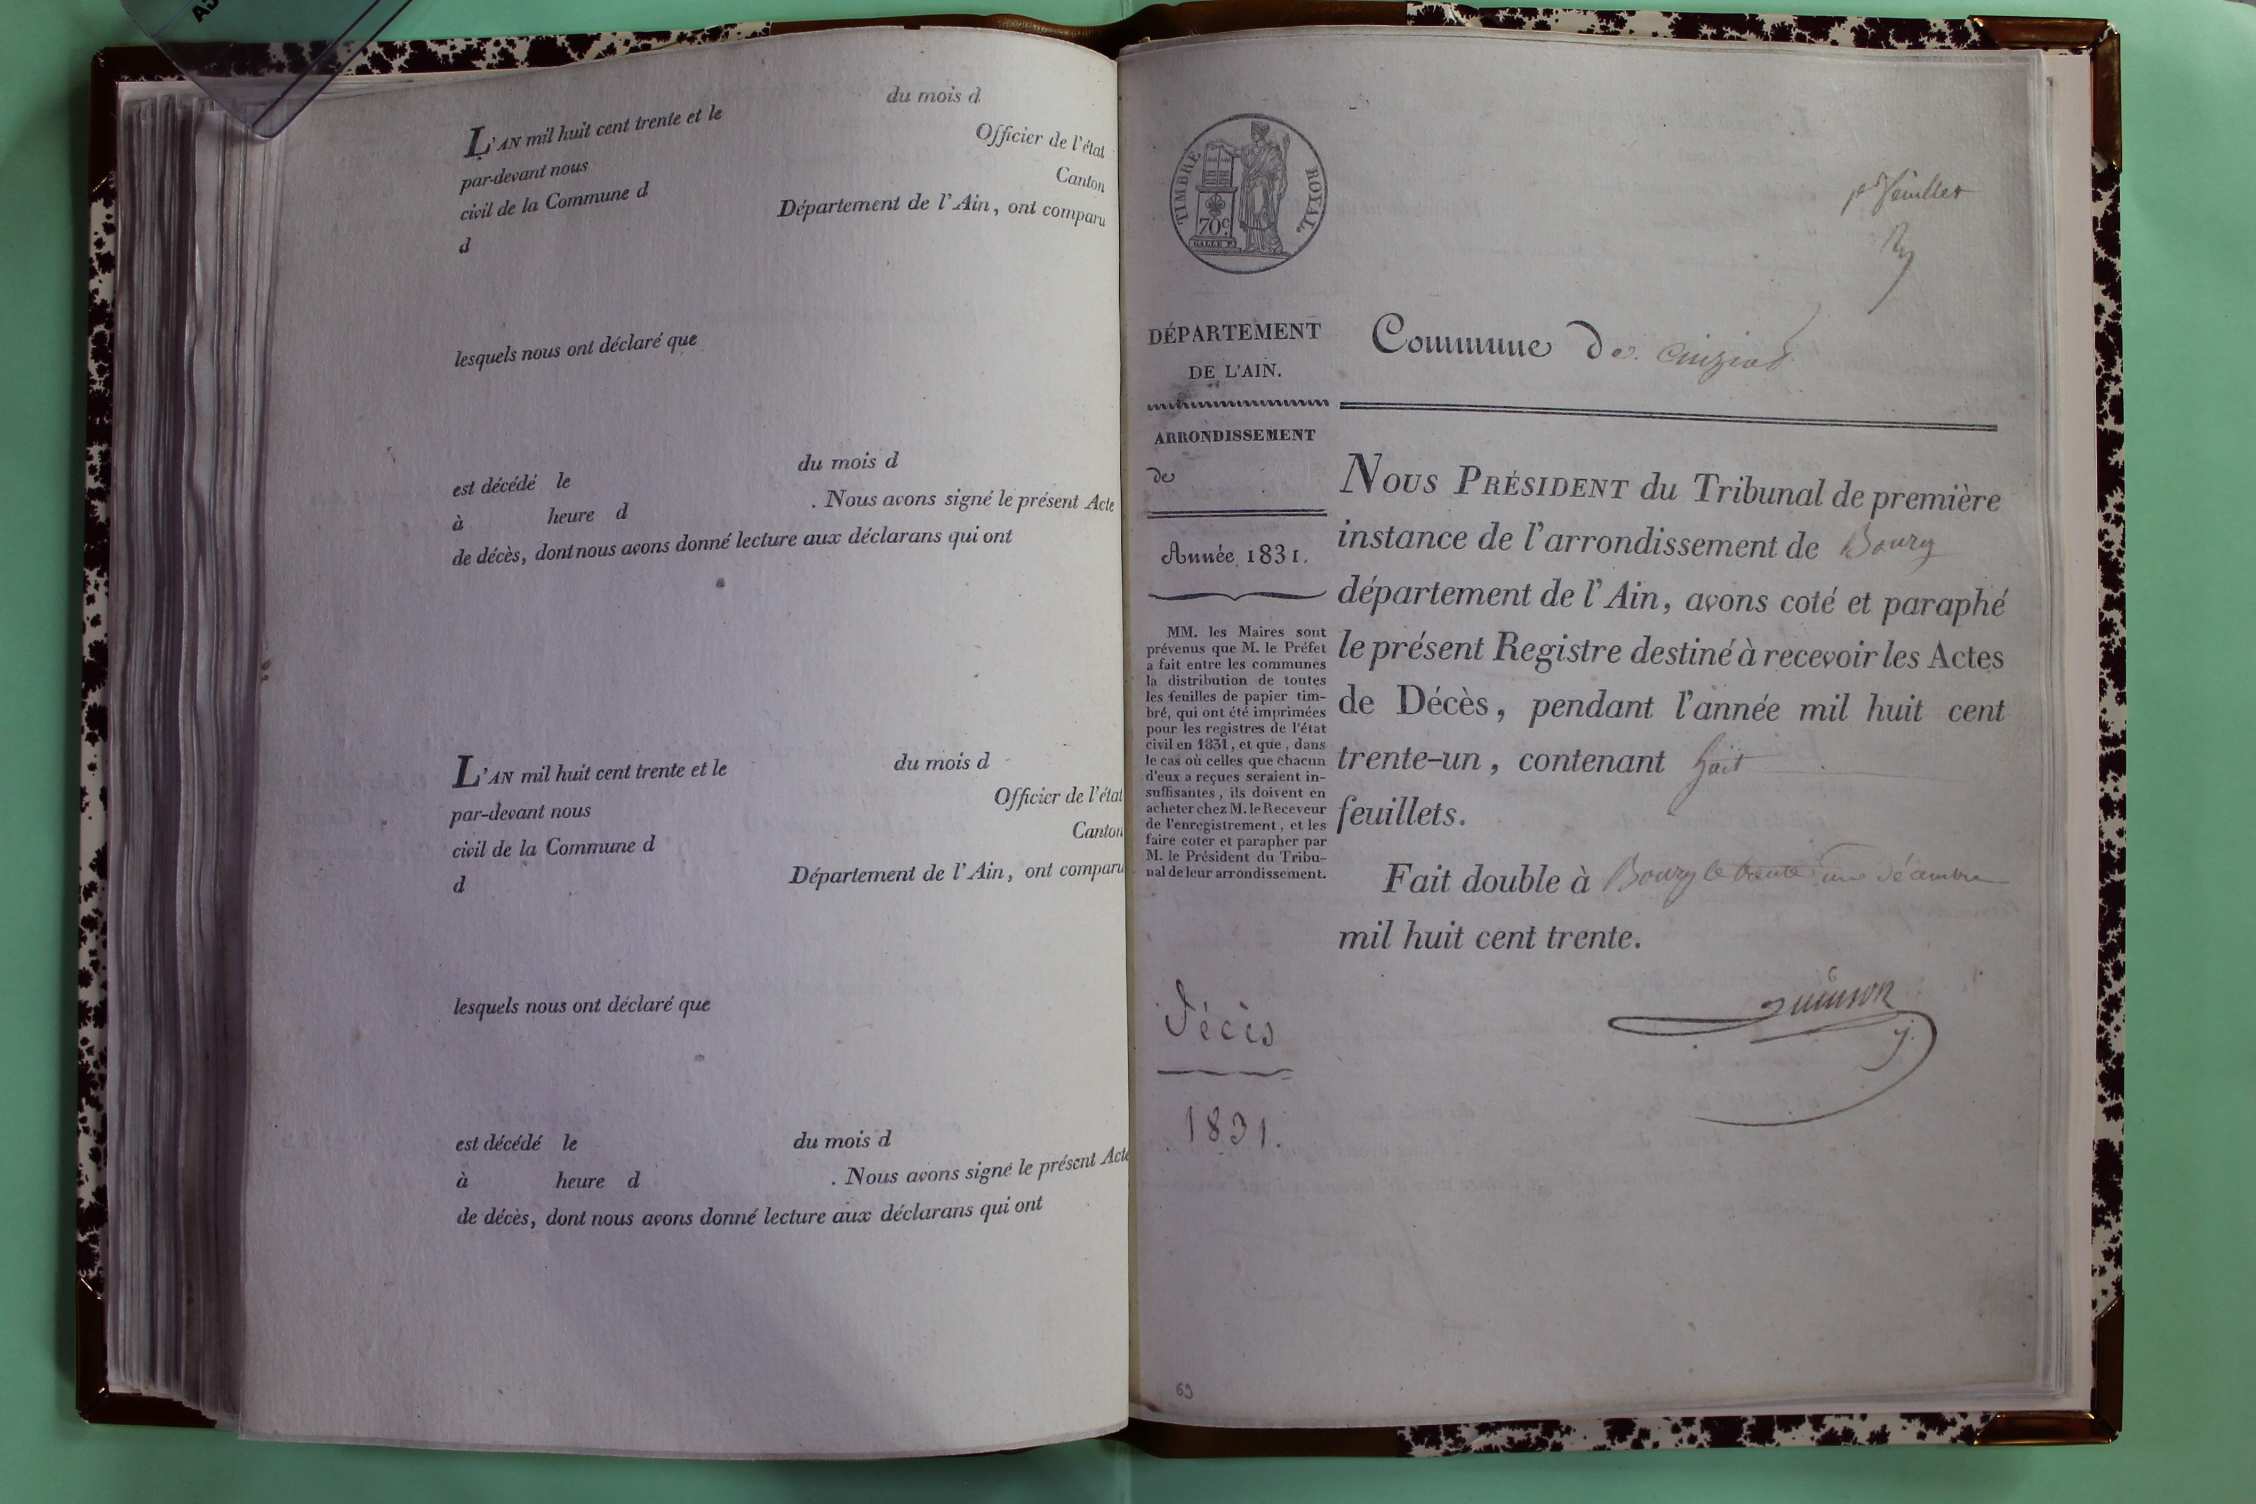 L'AN mil huit cent trente et le du mois d
par-devant nous Officier de l'état
civil de la Commune d Canton
d Département de l'Ain, ont comparu
lesquels nous ont déclaré que
est décédé le du mois d
à heure d . Nous avons signé le présent Acte
de décès, dont nous avons donné lecture aux déclarans qui ont
L'AN mil huit cent trente et le du mois d
par-devant nous Officier de l'état
civil de la Commune d Canton
d Département de l'Ain, ont comparu
lesquels nous ont déclaré que
est décédé le du mois d
à heure d . Nous avons signé le présent Acte
de décès, dont nous avons donné lecture aux déclarans qui ont
TIMBRE ROYAL.
70c.
DÉPARTEMENT
DE L'AIN.
ARRONDISSEMENT
de
Année 1831.
MM. les Maires sont
prévenus que M. le Préfet
a fait entre les communes
la distribution de toutes
les feuilles de papier tim-
bré, qui ont été imprimées
pour les registres de l'état
civil en 1831, et que, dans
le cas où celles que chacun
d'eux a reçues seraient in-
suffisantes, ils doivent en
acheter chez M. le Receveur
de l'enregistrement, et les
faire coter et parapher par
M. le Président du Tribu-
nal de leur arrondissement.
Décès
1831.
69
Commune de Cuiziat
NOUS PRÉSIDENT du Tribunal de première
instance de l'arrondissement de Bourg
département de l'Ain, avons coté et paraphé
le présent Registre destiné à recevoir les Actes
de Décès, pendant l'année mil huit cent
trente-un, contenant huit
feuillets.
Fait double à Bourg le trente une décembre
mil huit cent trente.